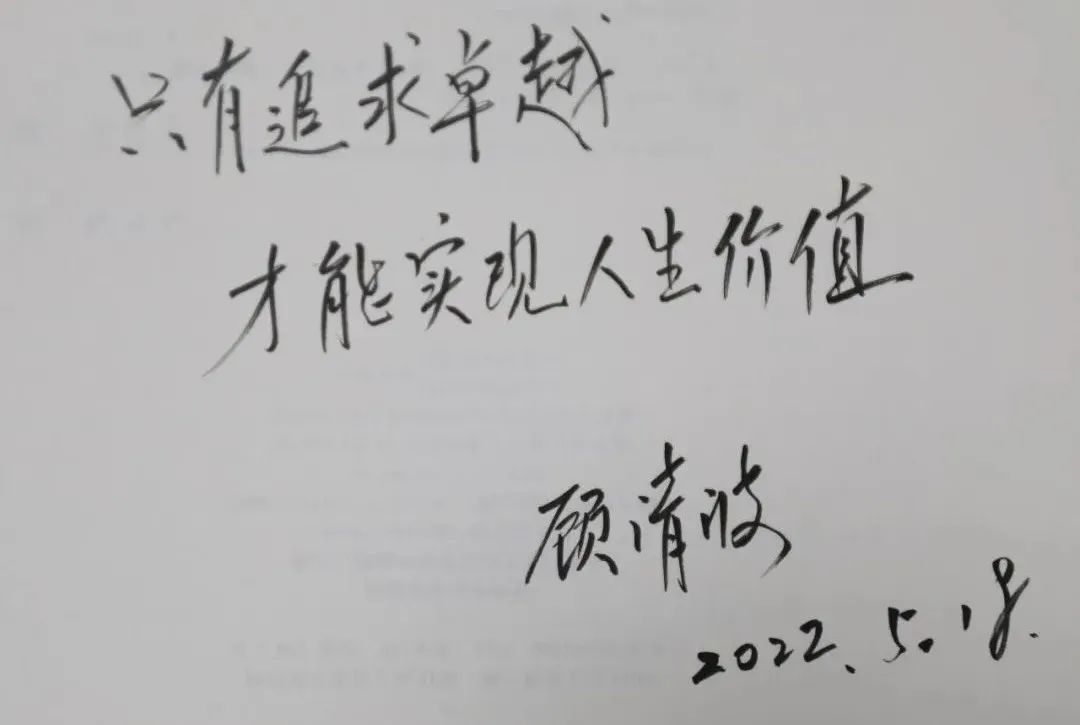 只有追求卓越
才能实现人生价值
顾清波
2022.5.18.